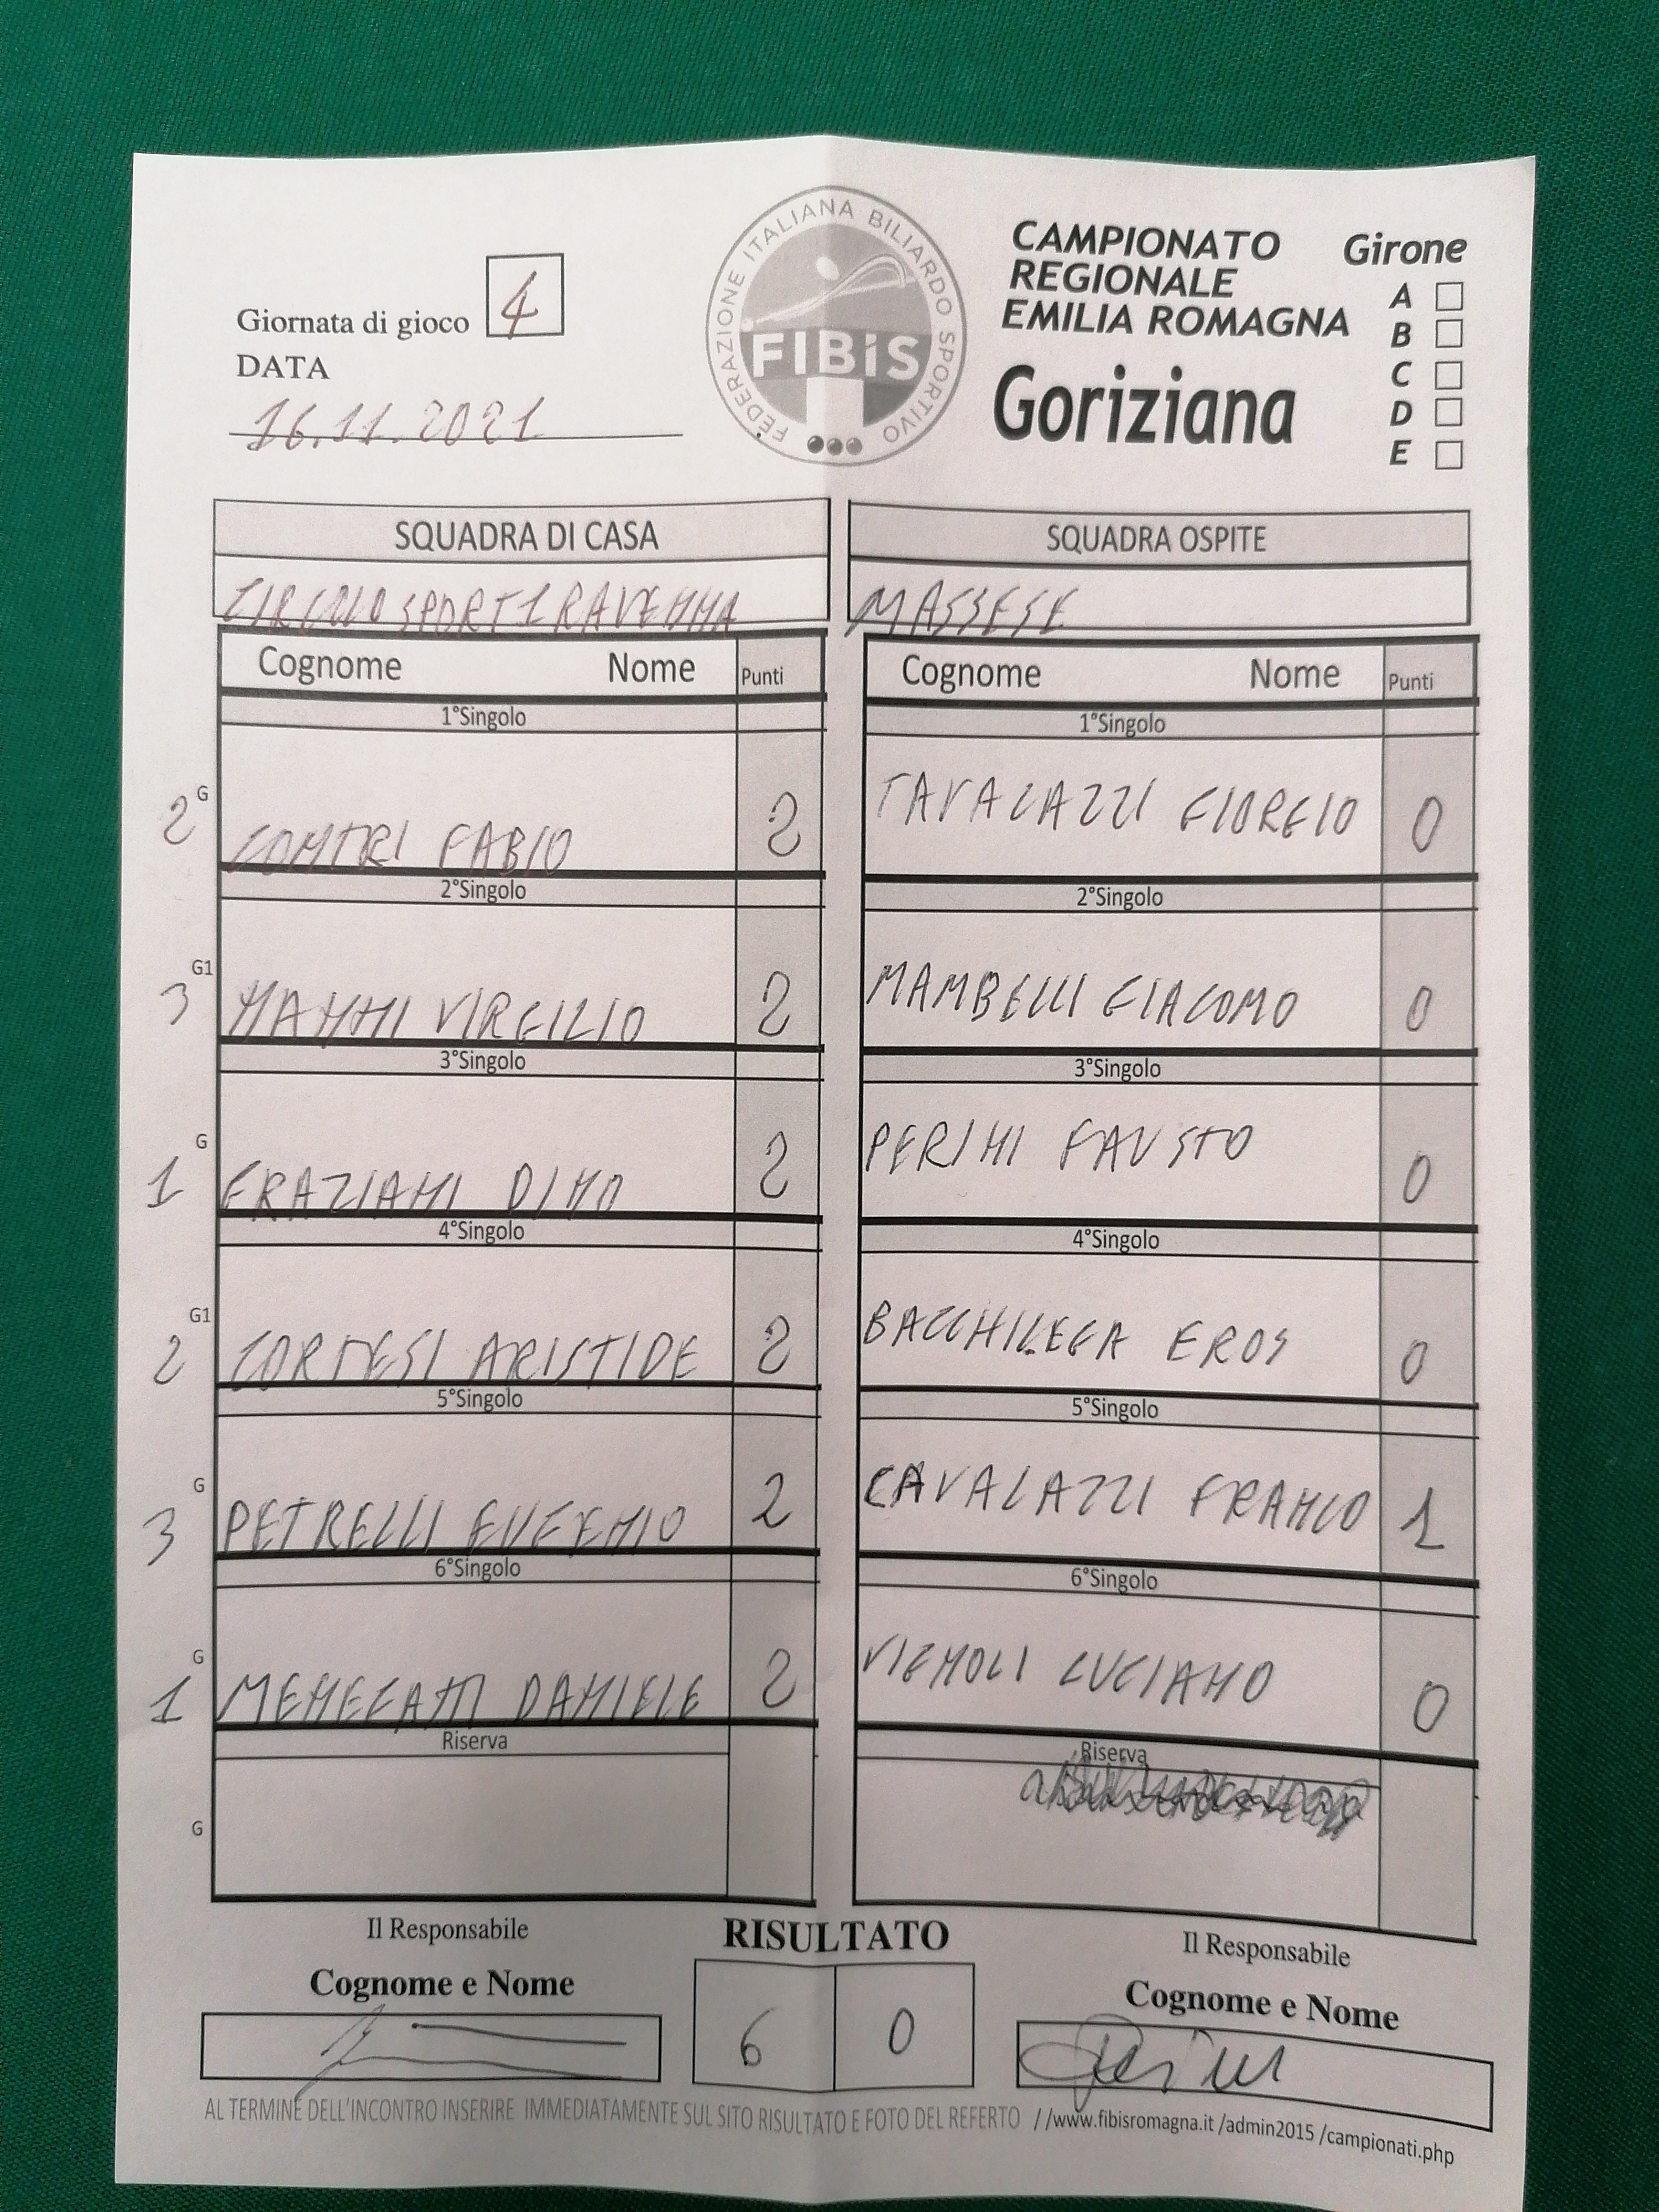 FEDERAZIONE ITALIANA BILIARDO SPORTIVO
FIBiS
CAMPIONATO
REGIONALE
EMILIA ROMAGNA
Goriziana
Girone
A
B
C
D
E
Giornata di gioco 4
DATA
16.11.2021
SQUADRA DI CASA
CIRCOLO SPORT 1 RAVENNA
SQUADRA OSPITE
MASSESE
Cognome Nome Punti
Cognome Nome Punti
1°Singolo
1°Singolo
2 G CONTRI FABIO 2
TAVALAZZI GIORGIO 0
2°Singolo
2°Singolo
3 G1 NANNI VIRGILIO 2
MAMBELLI GIACOMO 0
3°Singolo
3°Singolo
1 G GRAZIANI DINO 2
PERINI FAUSTO 0
4°Singolo
4°Singolo
2 G1 CORTESI ARISTIDE 2
BACCHILEGA EROS 0
5°Singolo
5°Singolo
3 G PETRELLI EUGENIO 2
CAVALAZZI FRANCO 1
6°Singolo
6°Singolo
1 G MENEGATTI DANIELE 2
VIGNOLI LUCIANO 0
Riserva
Riserva
G
Il Responsabile
Cognome e Nome
RISULTATO
6 0
Il Responsabile
Cognome e Nome
AL TERMINE DELL'INCONTRO INSERIRE IMMEDIATAMENTE SUL SITO RISULTATO E FOTO DEL REFERTO //www.fibisromagna.it /admin2015 /campionati.php